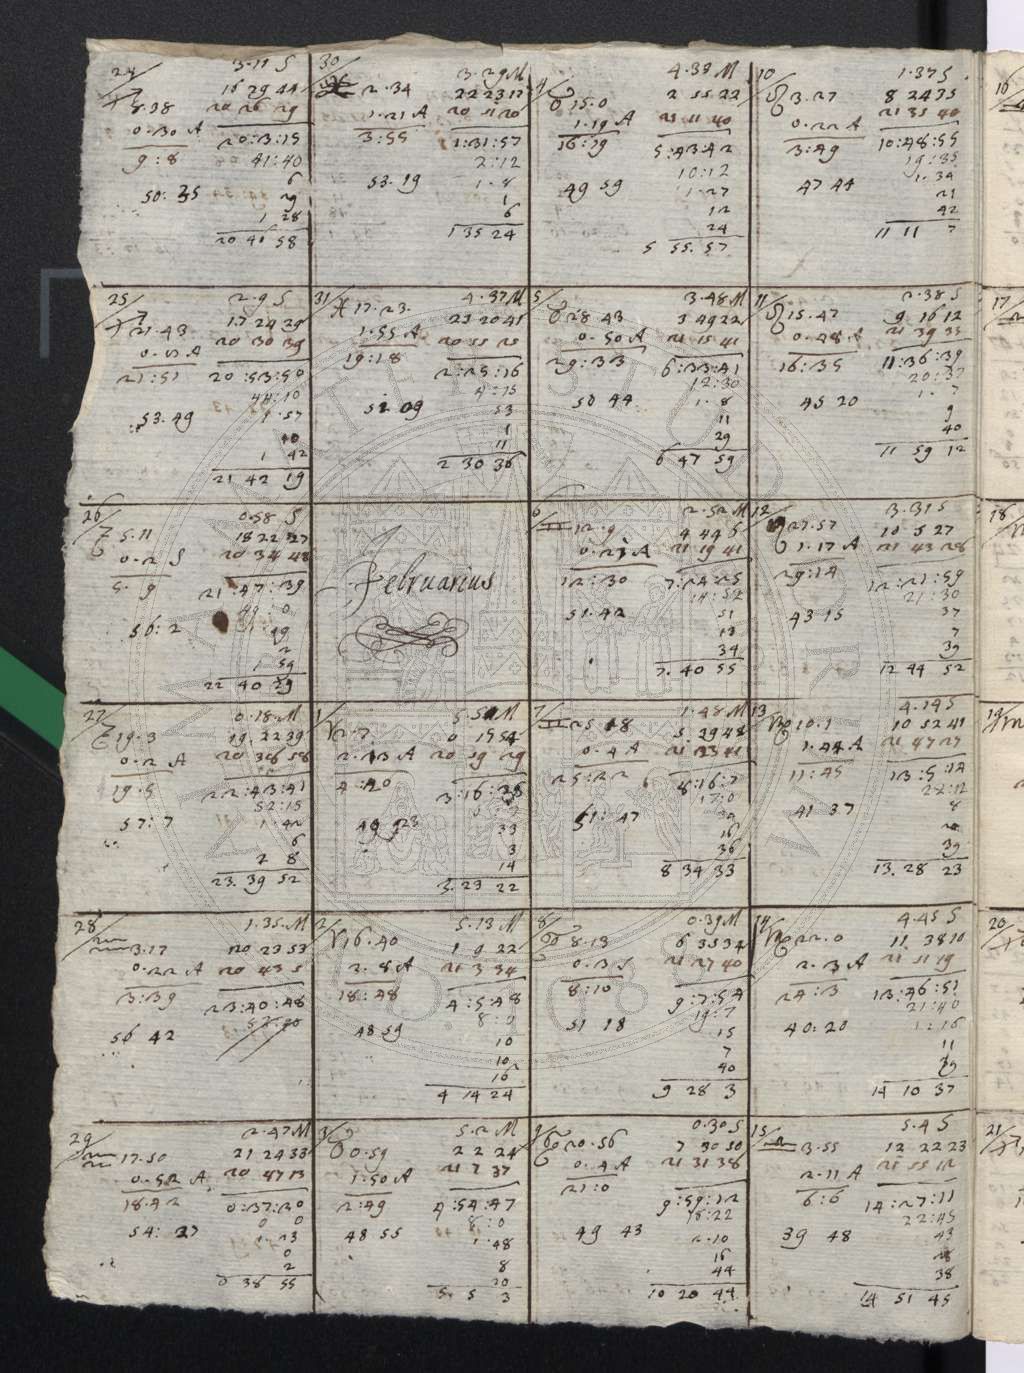 24
3·11 S
♐ 8·38
16 29 44
20 26 29
0·30 A
20:3:15
9:8
41:40
6
50:35
29
1 28
20 46 58
25
2·9 S
♐ 21·43
17 24 29
20 30 39
21:51
20:53:50
44:10
53·49
1·57
10
1 42
21 42 19
26
0·58 S
5·11
18 22 27
0·2 S
20 34 48
5·9
21:47:39
49:0
56:2
2
1 59
22 40 29
27
0·18·M
19·3
19·22 39
0·2 A
20 38 58
19·5
22:43:41
52:15
57:7
1·42
6
2 8
23·39 52
28
1·35·M
♒ 3·17
20 23 53
0·22 A
20 43 5
3:39
23:40:48
56 42
29
2·47 M
♒ 17·50
21 24 33
0·52 A
20 47 13
18·42
0:37:20
0 0
54:27
1·23
0
2
0 38 55
30
3·29 M
2·34
22 23 17
1·21 A
3:55
1:31:57
2:12
53·19
1·8
1
6
1 35 24
31
4·37 M
♓ 17·23·
23 20 41
1·55 A
20 55 25
19:18
2:25:16
4:15
52 09
53
1
11
2 30 36
Februarius
1
♈ 2·7
2·13 A
20 59 29
4:20
33
3
14
3·23 22
2
5·13 M
♈ 16·40
1 9 22
2·8 A
21 3 34
18:48
4:5:48
8:0
48 59
10
10
16
4 14 24
3
5·2 M
♉ 0·59
2 2 24
1·50 A
21 7 37
2:49
4:54:47
8:0
48 55
1·48
8
20
5· 5 3
4
4·33 M
♉ 15·0
2 55 22
1·19 A
21 11 40
16:19
5:43:42
10:12
49 59
1·27
12
24
5 55·57
5
3·48 M
♉ 28 43
3 49 22
0·50 A
21 15 41
29:33
6:33:41
12:30
50 44
1·8
11
29
6 47 59
6
2·52 M
♊ 12·9
4 44 6
21 19 41
12:30
7:24:25
14:52
51·42
51
13
34
7·40 55
7
1·48 M
♊ 25 18
5·29 48
0·4 A
21 23 41
25:22
8:16:7
17:0
51:47
16
36
8 34 33
8
0·39 M
♋ 8·13
6 35 34
0·3 S
21 27 40
8:10
9:7:54
19:7
51 18
15
7
40
9 28 3
9
0·30 S
♋ 20·56
7 30 50
0·4 A
21 31 38
21:0
9:59:12
18:22
49 43
2·10
16
44
10 20 44
10
1·37 S
♌ 3·27
8 24 35
0·22 A
21 35 40
3:49
10:48:55
19:35
47 44
1·34
21
42
11 11 7
11
2·38 S
♌ 15·47
9 16 12
0·48 A
21 39 35
16:35
11:36:39
20:37
45 20
1·7
9
40
11 59 12
12
3·31 S
27·57
10 5 27
1·17 A
21 43 28
29:14
12:21:59
21:30
43·15
37
7
39
12 44 52
13
4·14 S
♍ 10·1
10 52 41
1·44 A
21 47 27
11:45
13:5:14
22:12
41 37
8
20
39
13·28 23
14
4·45 S
♍ 22·0
11 38 10
2·3 A
21 51 19
24:3
13:46:51
21:40
40:20
1:16
11
39
14 10 37
15
5·4 S
♎ 3·55
12 22 23
2·11 A
21 55 12
6:6
14:27:11
22:45
39 48
43
28
38
14 51 45
16
17
18
19
20
21